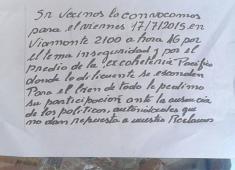 Sr Vecinos lo convocamos
para el viernes 17/7/2015 en
Viamonte 2100 a hora 16 por
el tema inseguridad y por el
predio de la ex cheteria Pacifico
donde lo delicuente se esconden
Para el bien de todo le pedimo
su participación ante la ausencia
de los politicos, autoridades que
no dan repuesta a nuestro Reclamo